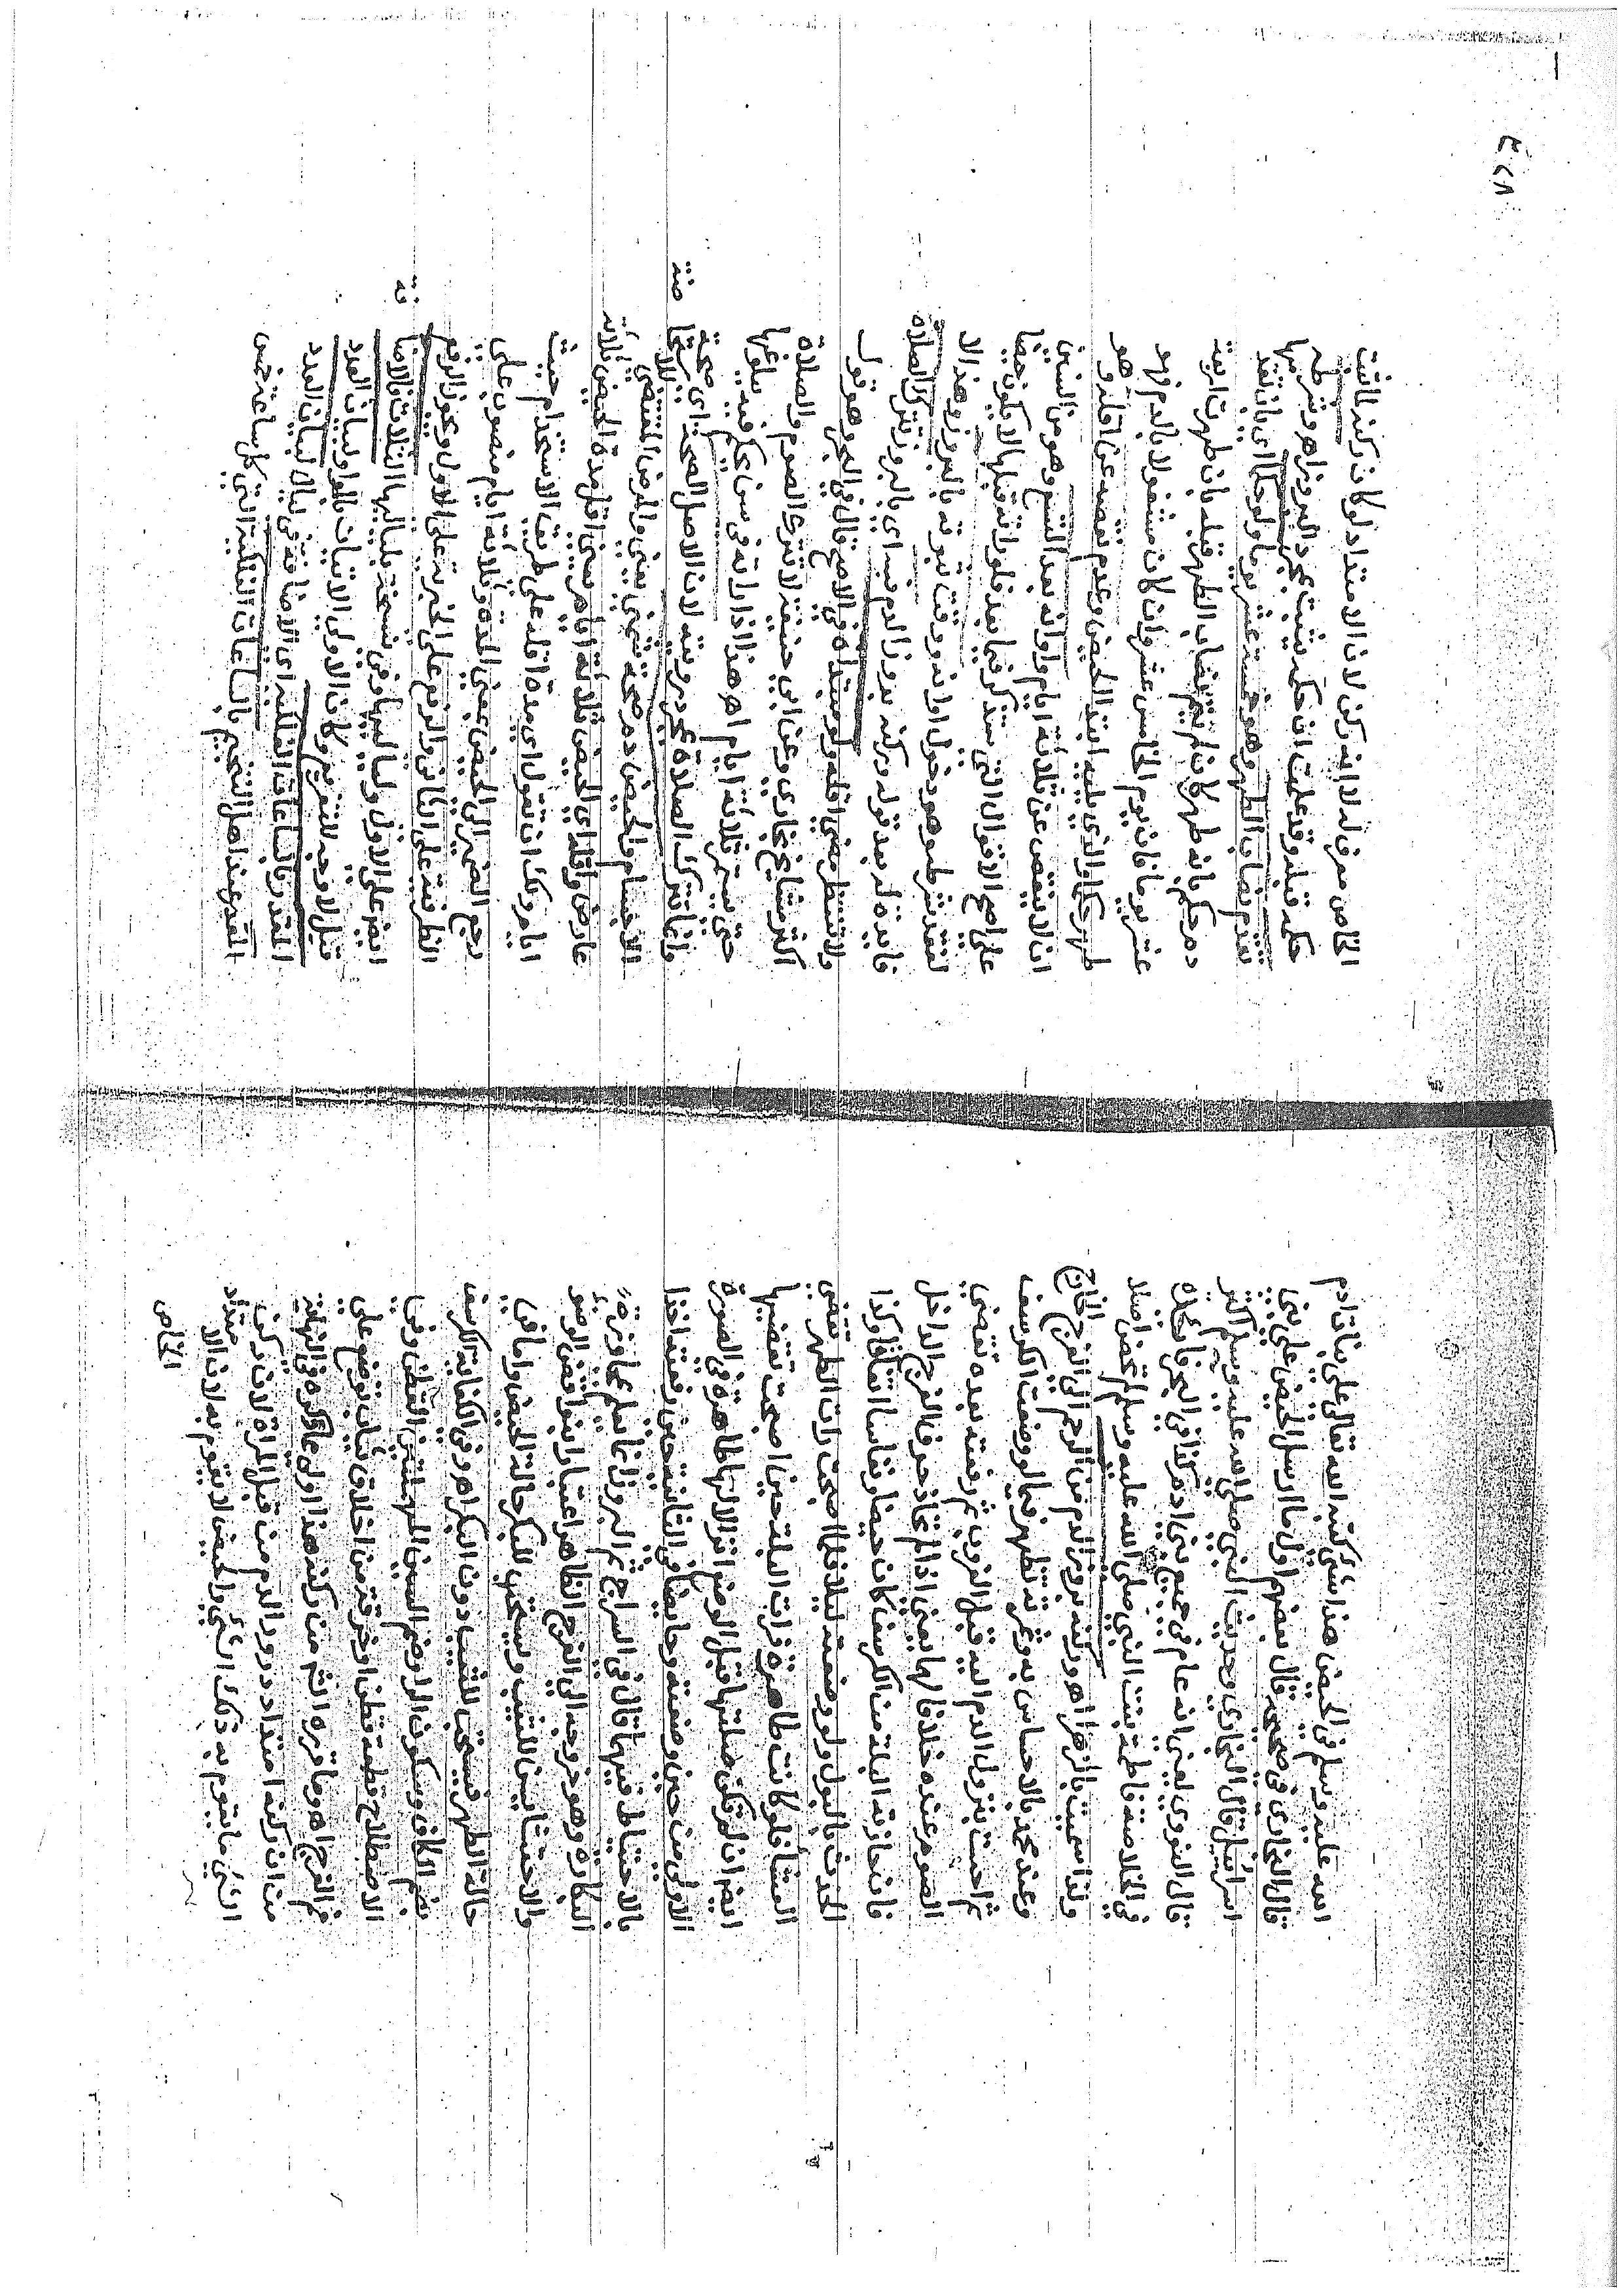 الله عليه وسلم في الحيض هذا شئ كتبه الله تعالى على بنات ادم
قال البخاري في صحيحه قال بعضهم اول ما ارسل الحيض على بني
اسرائيل قال البخاري وحديث النبي صلى الله عليه وسلم اكثر
قال النووي يعني انه عام في جميع بني ادم كذا في البحر فائدة
في الخلاصة فاطمة بنت النبي صلى الله عليه وسلم لم تحض اصلا
ولذا سميت بالزهرا اهـ وركنه بروز الدم من الرحم الى الفرج الخارج
وعند محمد بالاحساس به وثمرته تظهر فيما لو وضعت الكرسف
ثم احست بنزول الدم اليه قبل الغروب ثم رفعته بعده تقضي
الصوم عنده خلافا لهما يعني اذا لم يحاذ حرف الفرج الداخل
فان حاذته البلة من الكرسف كان حيضا ونفاسا اتفاقا وكذا
الحدث بالبول ولو وضعته ليلا فلما اصبحت رات الطهر تقضي
العشا فلو كانت طاهرة فرات البلة حين اصبحت تقضيها
ايضا ان لم تكن صلتها قبل الوضع انزالا لها طاهرة في الصورة
الاولى من حين وضعته وحايضا في الثانية حين رفعته اخذا
بالاحتياط فيهما قال في السراج ثم البروز انما يعلم بمجاوزة
البكارة وهو خروجه الى الفرج الظاهر اعتبارا بنواقض الوضو
والاحتشا يسن للثيب ويستحب للبكر حالة الحيض واما في
حالة الطهر فيستحب للثيب دون البكر اهـ وفي الكفاية الكرسف
بضم الكاف وسكون الرا وضم السين المهملتين القطن وفي
الاصطلاح قطعة قطن او خرقة من اخلاق ثياب توضع على
فم الفرج اهـ وما قرره الشم من ركنه هذا اولى مما ذكره في النهاية
من ان ركنه امتداد دور الدم من قبل المراة لان ركن
الشئ ما يتقوم به ذلك الشئ والحيض لا يتقوم به لان الامتداد
الخاص
الخاص معرف له لا انه ركن لان الامتداد لو كان ركنه لما ثبت
حكمه قبله وقد علمت ان حكمه يثبت بمجرد البروز اهـ وشرطه
تقدم نصاب الطهر وهو خمسة عشر يوما ولو حكما اي بان تقدمها
دم حكم بانه طهر كان لم يتم نصاب الطهر قبله بان طهرت اربعة
عشر يوما فان يوم الخامس عشر وان كان مشغولا بالدم فهو
طهر حكما والذي يليه ابتدا الحيض وعدم نقصه عن اقله وهو
ان لا ينقص عن ثلاثة ايام واوانه بعد التسع وهو من السنين
على اصح الاقوال التي ستذكر فيما بعد فلو راته قبلها لا يكون حيضا
لفقد شرطه وهو دخول اوانه ووقت ثبوته بالبروز وهذا لا
فايدة له بعد قوله وركنه بروز الدم فبه اي بالبروز تترك الصلاة
ولا تنتظر مضي اقله ولو مبتداة في الاصح قال في البحر وهو قول
اكثر مشايخ بخارى وعن ابي حنيفة لا تترك الصوم والصلاة
حتى يستمر ثلاثة ايام اهـ هذا اذا راته في سن يحكم فيه ببلوغها
وانما تترك الصلاة بمجرد رويته لان الاصل الصحة اي صحة
الاجسام والحيض دم صحة شمني يعني والمرض المقتضي للاستحاضة
عارض واقله اي الحيض ثلاثة ايام يعني اقل مدة الحيض ثلاثة
ايام ولك ان تقول اي مدة اقله على طريق الاستخدام حيث
يرجع الضمير الى الحيض بمعنى المدة وثلاثة ايام منصوب على
الظرفية على الثاني والرفع على الخبرية على الاول ويجوز الرفع
ايضا على الاول ولياليها وفي نسخة بلياليها الثلاث بالاضافة
قيل لا وجه للتفريع وكان الاولى الاتيان بالواو لبيان العدد
المقدر بالساعات الفلكية اي الاضافة في ليال لبيان العدد
المقدر عند اهل التنجيم بالساعات الفلكية التي كل ساعة خمس